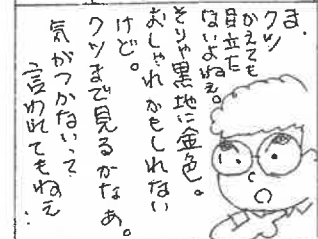 ま、
クツ
かえても
目立た
ないよねぇ。
そりゃ黒地に金色。
おしゃれかもしれない
けど。
クツまで見るかなあ。
気がつかないって
言われてもねえ…